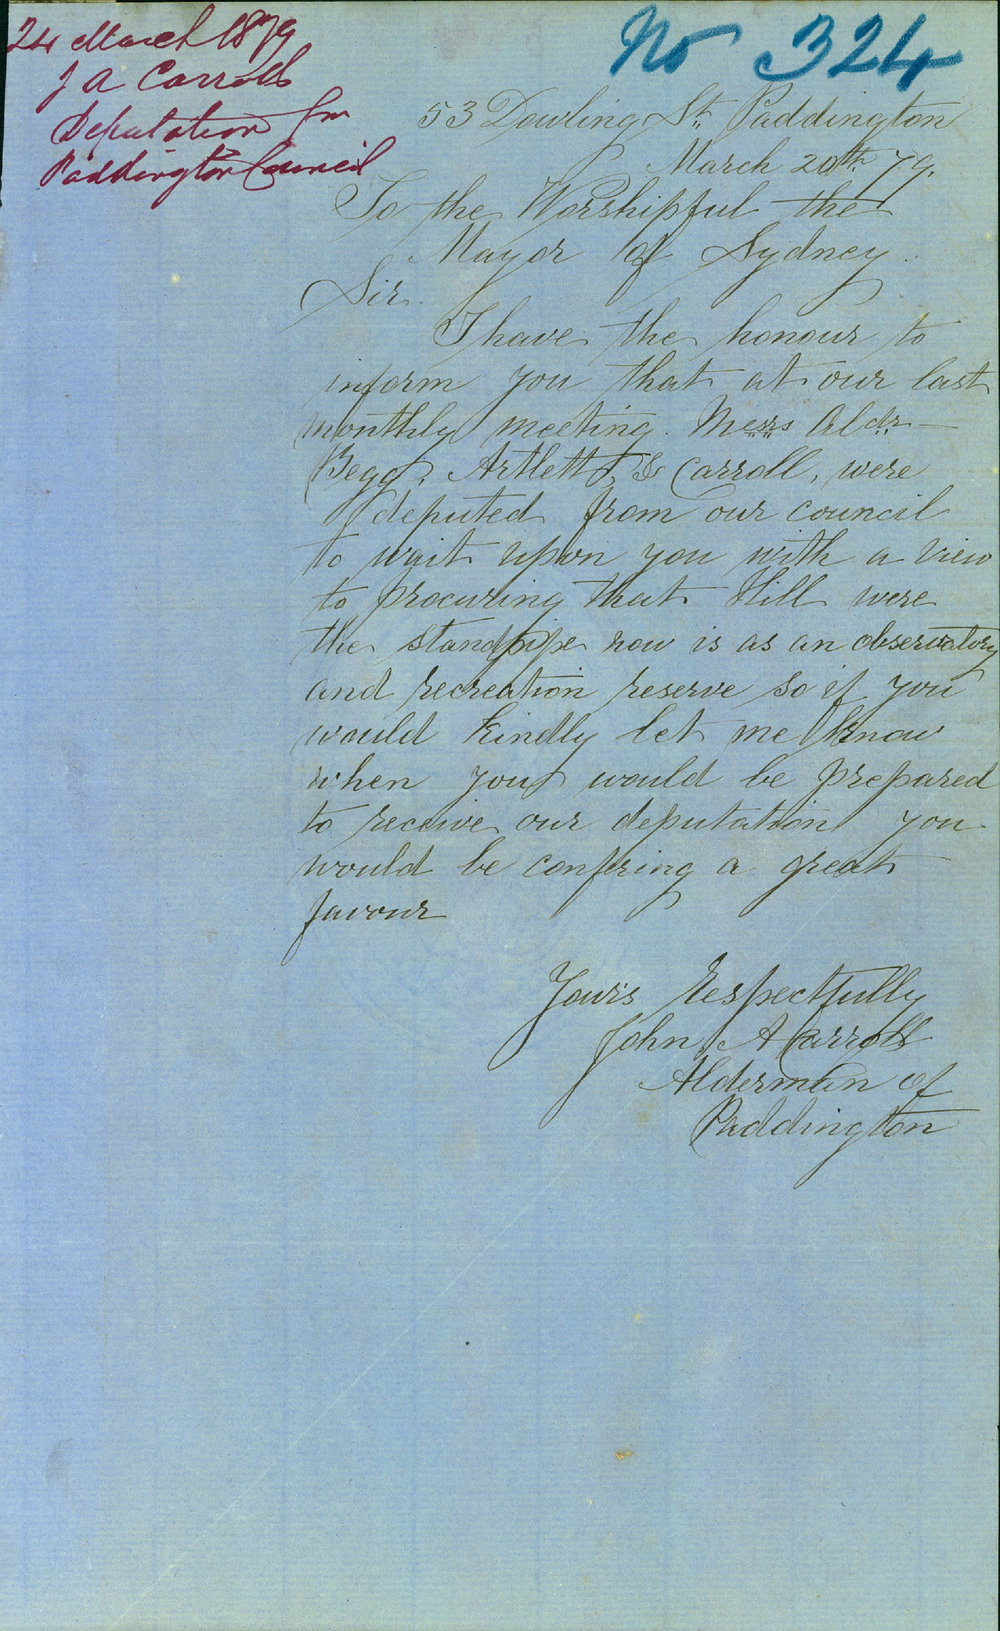 24 March 1879
J A Carroll
Deputation fm
Paddington Council
No 324
53 Dowling St. Paddington
March 20th 79.
To the Worshipful the
Mayor of Sydney.
Sir.
I have the honour to
inform you that at our last
monthly meeting. Messrs Aldr–
Begg, Artlett, & Carroll, were
deputed from our council
to wait upon you with a view
to procuring that Hill were
the standpipe now is as an observatory
and recreation reserve so if you
would kindly let me know
when you would be prepared
to receive our deputation you
would be confering a great
favour
Yours respectfully
John A Carroll
Alderman of
Paddington